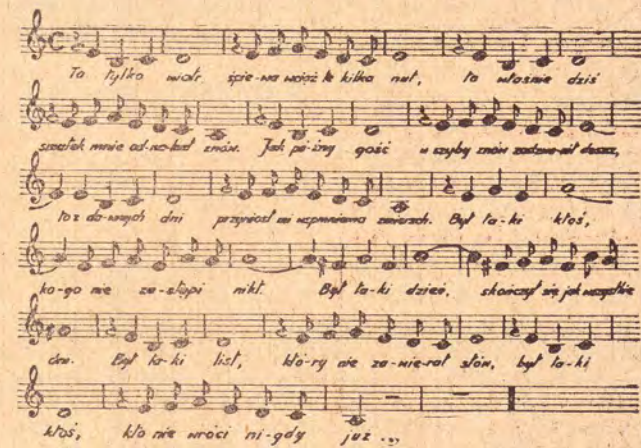 To tylko wiatr śpie-wa wciąż te kilka nut, to właśnie dziś
smutek mnie od-na-lazł znów. Jak pó-źny gość w szyby znów zadzwo-nił deszcz,
to z da-wnych dni przyniósł mi wspomnienia zmierzch. Był ta-ki ktoś,
ko-go nie za-stąpi nikt. Był ta-ki dzień, skończył się jak wszystkie
dni. Był ta-ki list, któ-ry nie za-wie-rał słów, był ta-ki
ktoś, kto nie wróci ni-gdy już ...